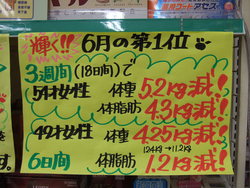 輝く!! 6月の第1位
3週間(18日間)で
54才女性 体重 5.2kg減!
体脂肪 4.3kg減!
49才女性 体重 4.25kg減!
124kg→11.2kg
6日間 体脂肪 1.2kg減!